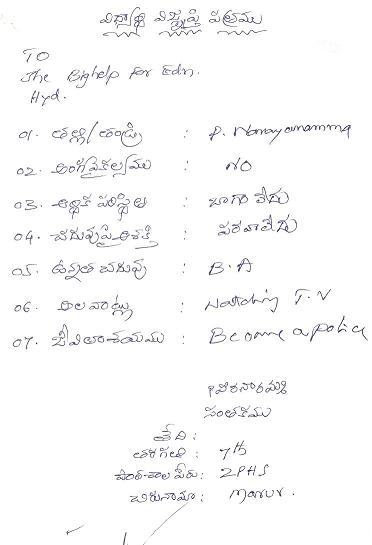 విద్యార్థి విజ్ఞప్తి పత్రము
TO
The Bighelp for Edn.
Hyd.
01. తల్లి/తండ్రి : P. Narayanamma
02. అంగవైకల్యము : NO
03. ఆర్థిక పరిస్థితి : బాగాలేదు
04. చదువుపై ఆశక్తి : పరవాలేదు
05. ఉన్నత చదువు : B.A
06. అలవాట్లు : Watching T.V
07. జీవితాశయము : Become a police
సంతకము
తేది :
తరగతి : 7th
పాఠశాల పేరు : ZPHS
చిరునామా :